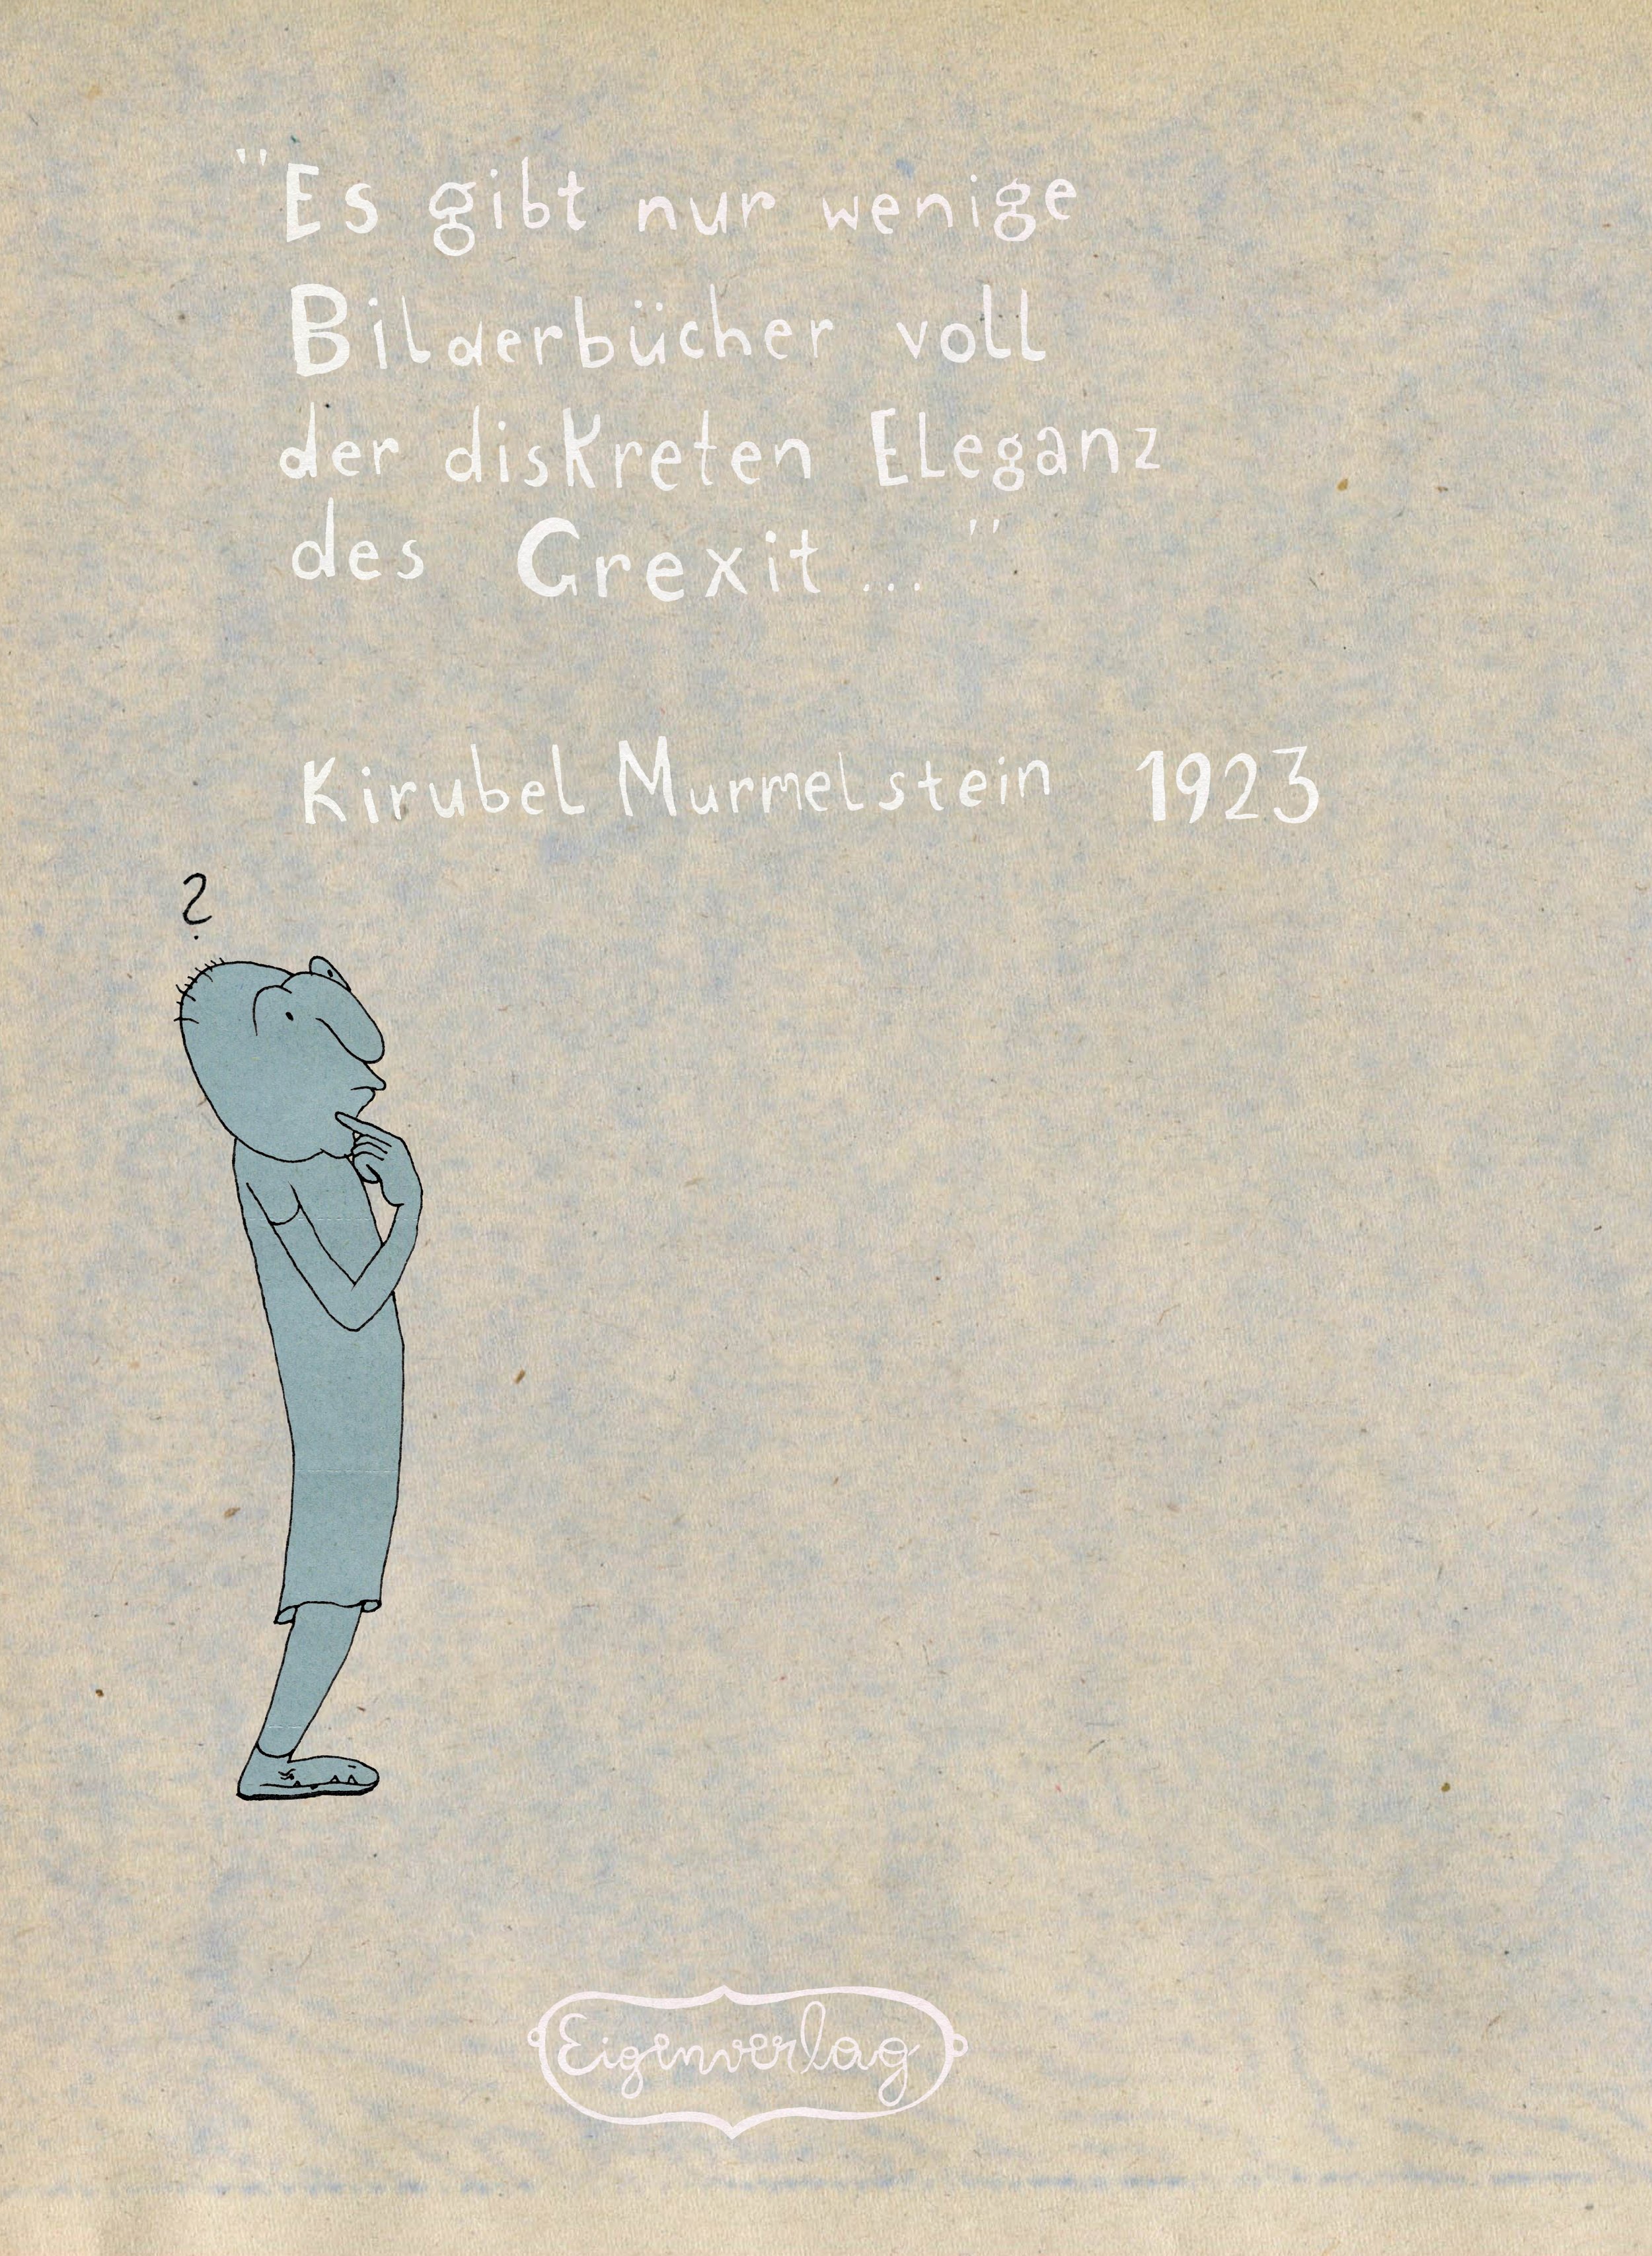 "Es gibt nur wenige
Bilderbücher voll
der diskreten Eleganz
des Grexit..."
Kirubel Murmelstein 1923
?
Eigenverlag